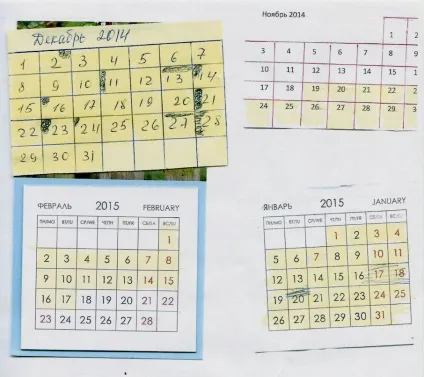 Декабрь 2014
1 2 3 4 5 6 7
8 9 10 11 12 13 14
15 16 17 18 19 20 21
22 23 24 25 26 27 28
29 30 31
Ноябрь 2014
1 2
3 4 5 6 7 8 9
10 11 12 13 14 15 16
17 18 19 20 21 22 23
24 25 26 27 28 29 3
ФЕВРАЛЬ 2015 FEBRUARY
ПН/MO ВТ/TU СР/WE ЧТ/TH ПТ/FR СБ/SA ВС/SU
1
2 3 4 5 6 7 8
9 10 11 12 13 14 15
16 17 18 19 20 21 22
23 24 25 26 27 28
ЯНВАРЬ 2015 JANUARY
ПН/MO ВТ/TU СР/WE ЧТ/TH ПТ/FR СБ/SA ВС/SU
1 2 3 4
5 6 7 8 9 10 11
12 13 14 15 16 17 18
19 20 21 22 23 24 25
26 27 28 29 30 31